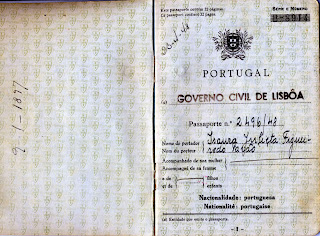 2-1-1897
Este passaporte contém 32 páginas
Ce passeport contient 32 pages
SÉRIE E NÚMERO
PORTUGAL
(a) GOVERNO CIVIL DE LISBÔA
Passaporte n.º 2496/48
Nome do portador Isaura
Nom du porteur
Acompanhado de sua mulher
Accompagné de sa femme
e de filhos
et de enfants
Nacionalidade: portuguesa
Nationalité: portugaise
(a) Entidade que emite o passaporte.
- 1 -